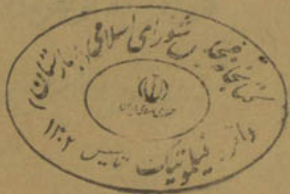 کتابخانه مجلس شورای اسلامی (بهارستان)
جمهوری اسلامی ایران
تاسیس ۱۳۰۲